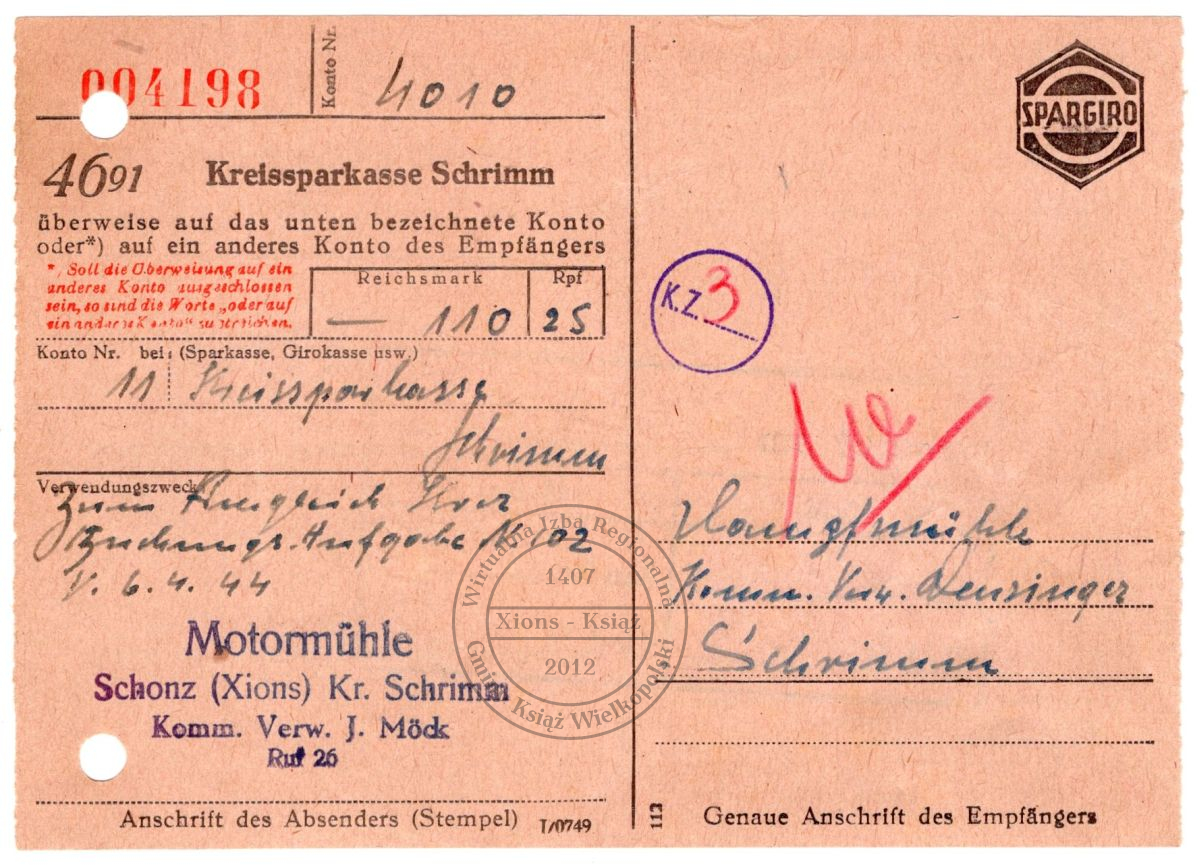 004198
Konto Nr.
4010
4691 Kreissparkasse Schrimm
überweise auf das unten bezeichnete Konto
oder*) auf ein anderes Konto des Empfängers
*) Soll die Überweisung auf ein
anderes Konto ausgeschlossen
sein, so sind die Worte „oder auf
ein anderes Konto" zu streichen.
Reichsmark Rpf
— 110 25
Konto Nr. bei: (Sparkasse, Girokasse usw.)
11 Kreissparkasse
Schrimm
Verwendungszweck
Zum Ausgleich Ihrer
Buchungs-Aufgabe N. 102
V. 6.4.44
Motormühle
Schonz (Xions) Kr. Schrimm
Komm. Verw. J. Möck
Ruf 26
Anschrift des Absenders (Stempel) I/0749
SPARGIRO
K.Z. 3
Dampfmühle
Komm. Verw. Densinger
Schrimm
113
Genaue Anschrift des Empfängers
Wirtualna Izba Regionalna
1407
Xions - Książ
2012
Gmina Książ Wielkopolski